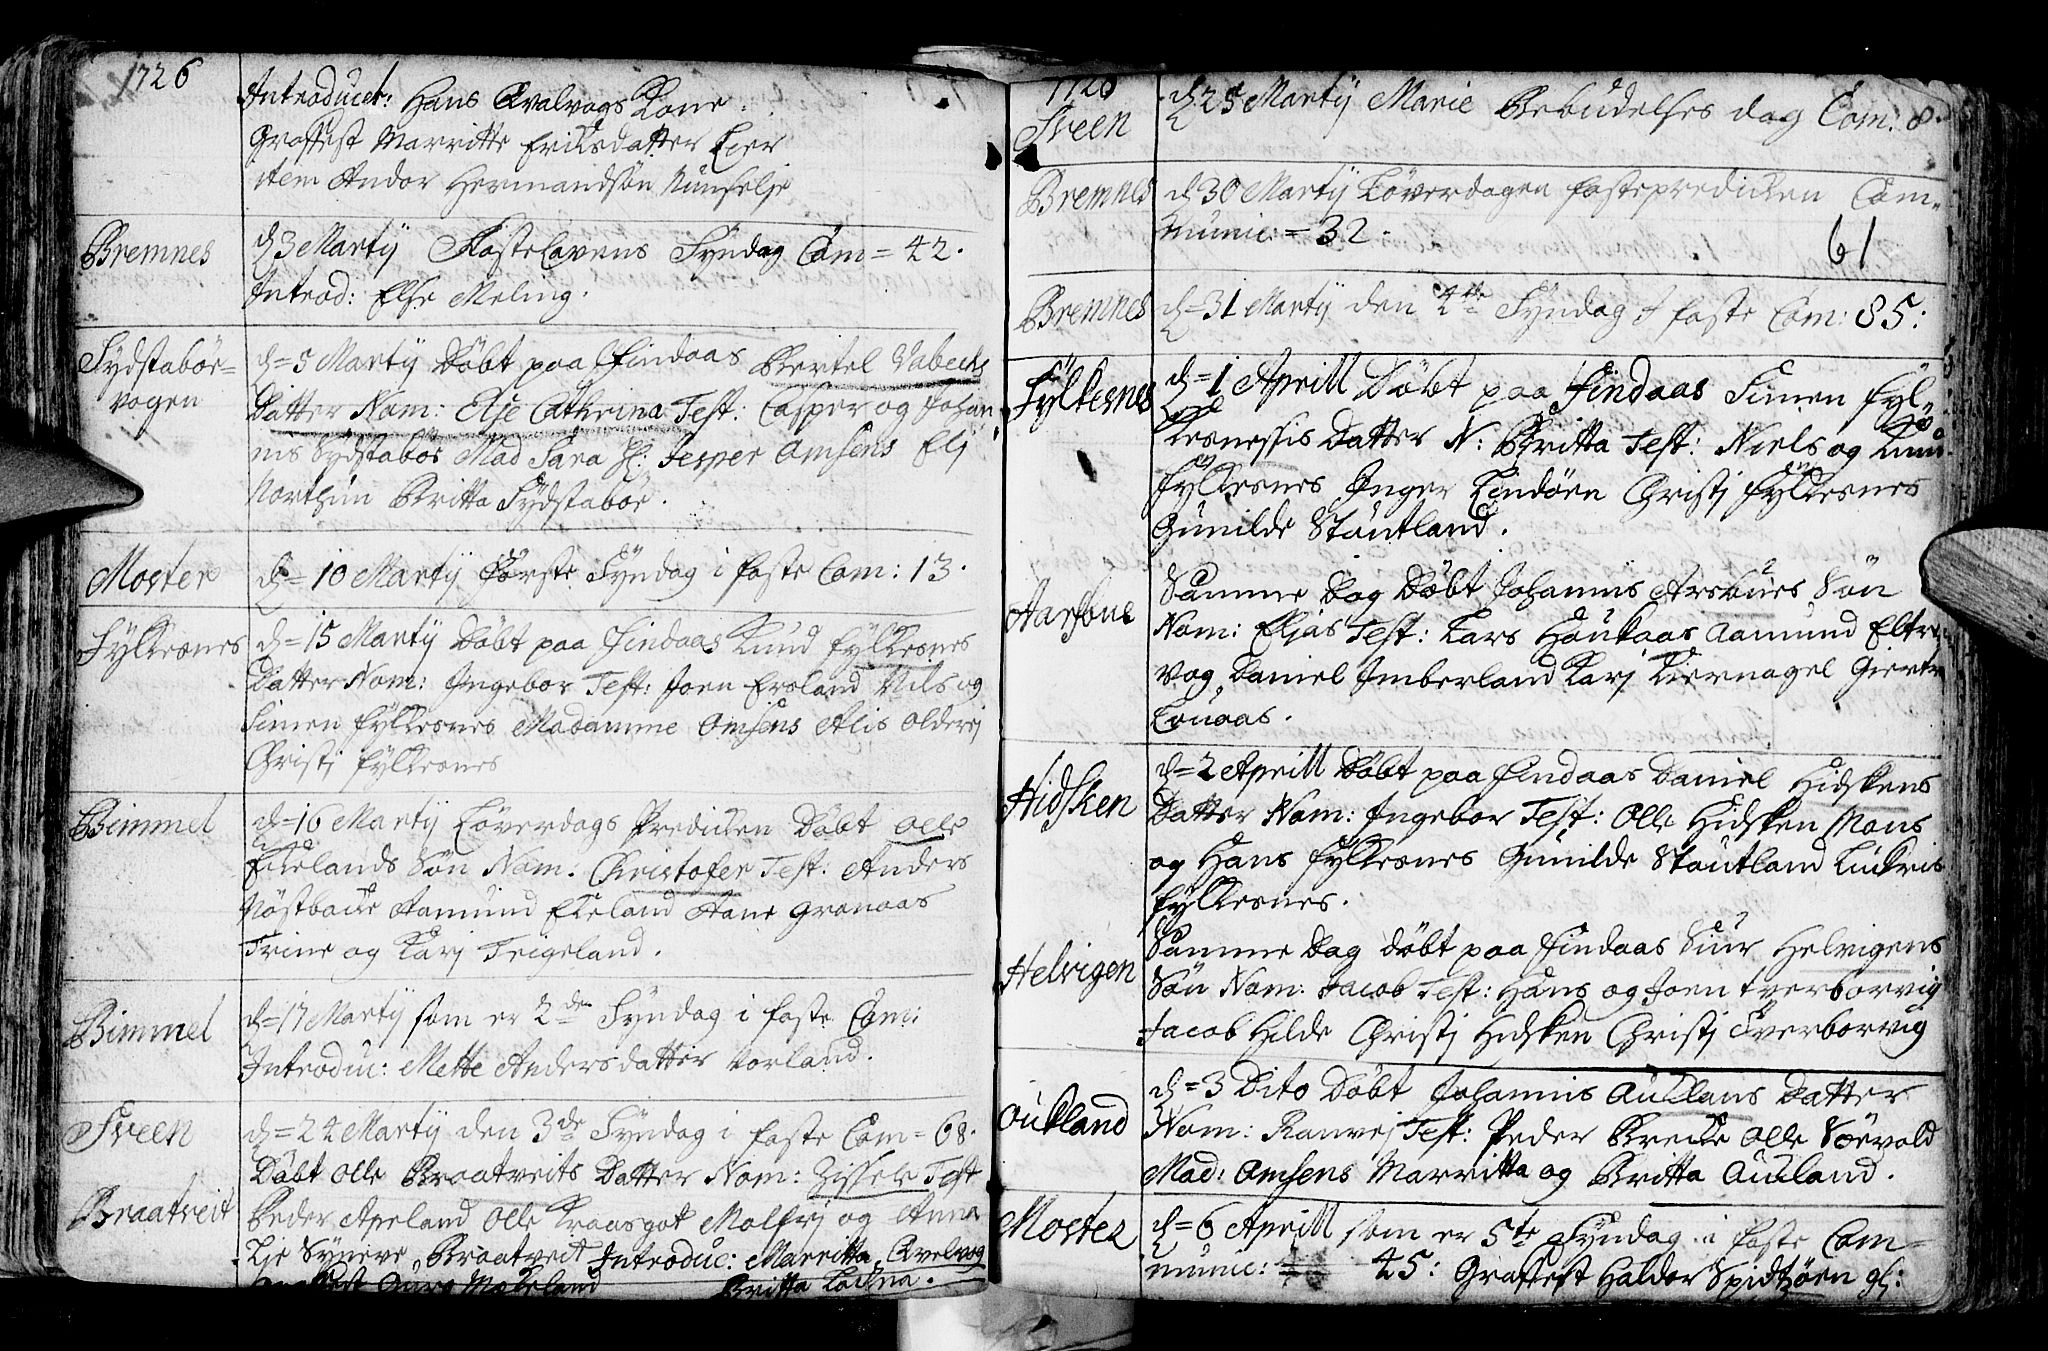 1726
Introducet: Hans Qvalvogs Kone.
Graffest Marritte Ericksdatter Eier
item Andor Hermandsön Nunselje
Bremnes
d 3 Martij Fastelavens Syndag Com = 42.
Introd: Else Meling.
Sydstaböe=
vogen
d=5 Martij Döbt paa Findaas Bertel Vabecks
Datter Nom: Else Cathrina Test: Casper og Johan
nis Sydstaböe Mad Sara Sl: Jesper Omsens Elj
Northun Britta Sydstaböe.
Moster
d=10 Martij Förste Syndag i faste Com: 13.
Fylkesnes
d=15 Martij Döbt paa Findaas Knud Fylkesnes
Datter Nom: Ingebor Test: Joen Eroland Nils og
Simen Fylkesnes Madamme Omsens Alis Olderej
Christj Fylkesnes
Bimmel
d=16 Martij Löverdags Prediken Döbt Olle
Ekelands Sön Nom: Christofer Test: Anders
Nöstbacke Aamund Ekeland Aane Granaas
Trine og Karj Teigeland.
Bimmel
d=17 Martij som er 2de Syndag i faste Com:
Introduc: Mette Andersdatter Vorland.
Sveen
d=24 Martij den 3de Syndag i faste Com=68.
Braatveit
Döbt Olle Braatveits Datter Nom: Zissele Test
Peder Apeland Olle Kraasgot Malfrj og Anna
Lje Synneve Braatveit Introduc: Marritta Qvelvog
Mokeland Britta
1726
Sveen
d 25 Martij Marie Bebudelses dag Com: 8.
Bremnes
d 30 Martij Löverdagen fasteprediken Com=
munic: = 32.
61
Bremnes
d=31 Martij den 4te Syndag i faste Com: 85:
Fylkesnes
d=1 Aprill Döbt paa Findaas Simen Fyl=
kesnessis Datter N: Britta Test: Niels og Knud
Fylkesnes Inger Lindöen Christj Fylkesnes
Gunilde Stoutland.
Aarsbue
Samme Dag Döbt Johannis Arsbues Sön
Nom: Elias Test: Lars Houkaas Aamund Eltre
vog Daniel Imberland Karj Kiernagel Giertr
Lonaas.
Hidsken
d=2 Aprill Döbt paa Findaas Daniel Hidskens
Datter Nom: Ingebor Test: Olle Hidsken Mons
og Hans Fylkesnes Gunilde Stoutland Luckris
Fylkesnes.
Helvigen
Samme Dag döbt paa Findaas Siur Helvigens
Sön Nom: Jacob Test: Hans og Joen Tverborvig
Jacob Hilde Christj Hidsken Christj Tverborvig
Oukland
d=3 Dito Döbt Johannis Aucklans Datter
Nom: Ranvej Test: Peder Brecke Olle Söevold
Mad: Omsens Marritta og Britta Auckland.
Moster
d=6 Aprill som er 5te Syndag i faste Com=
munic: 45: Graffest Haldor Spidtzöen gl: